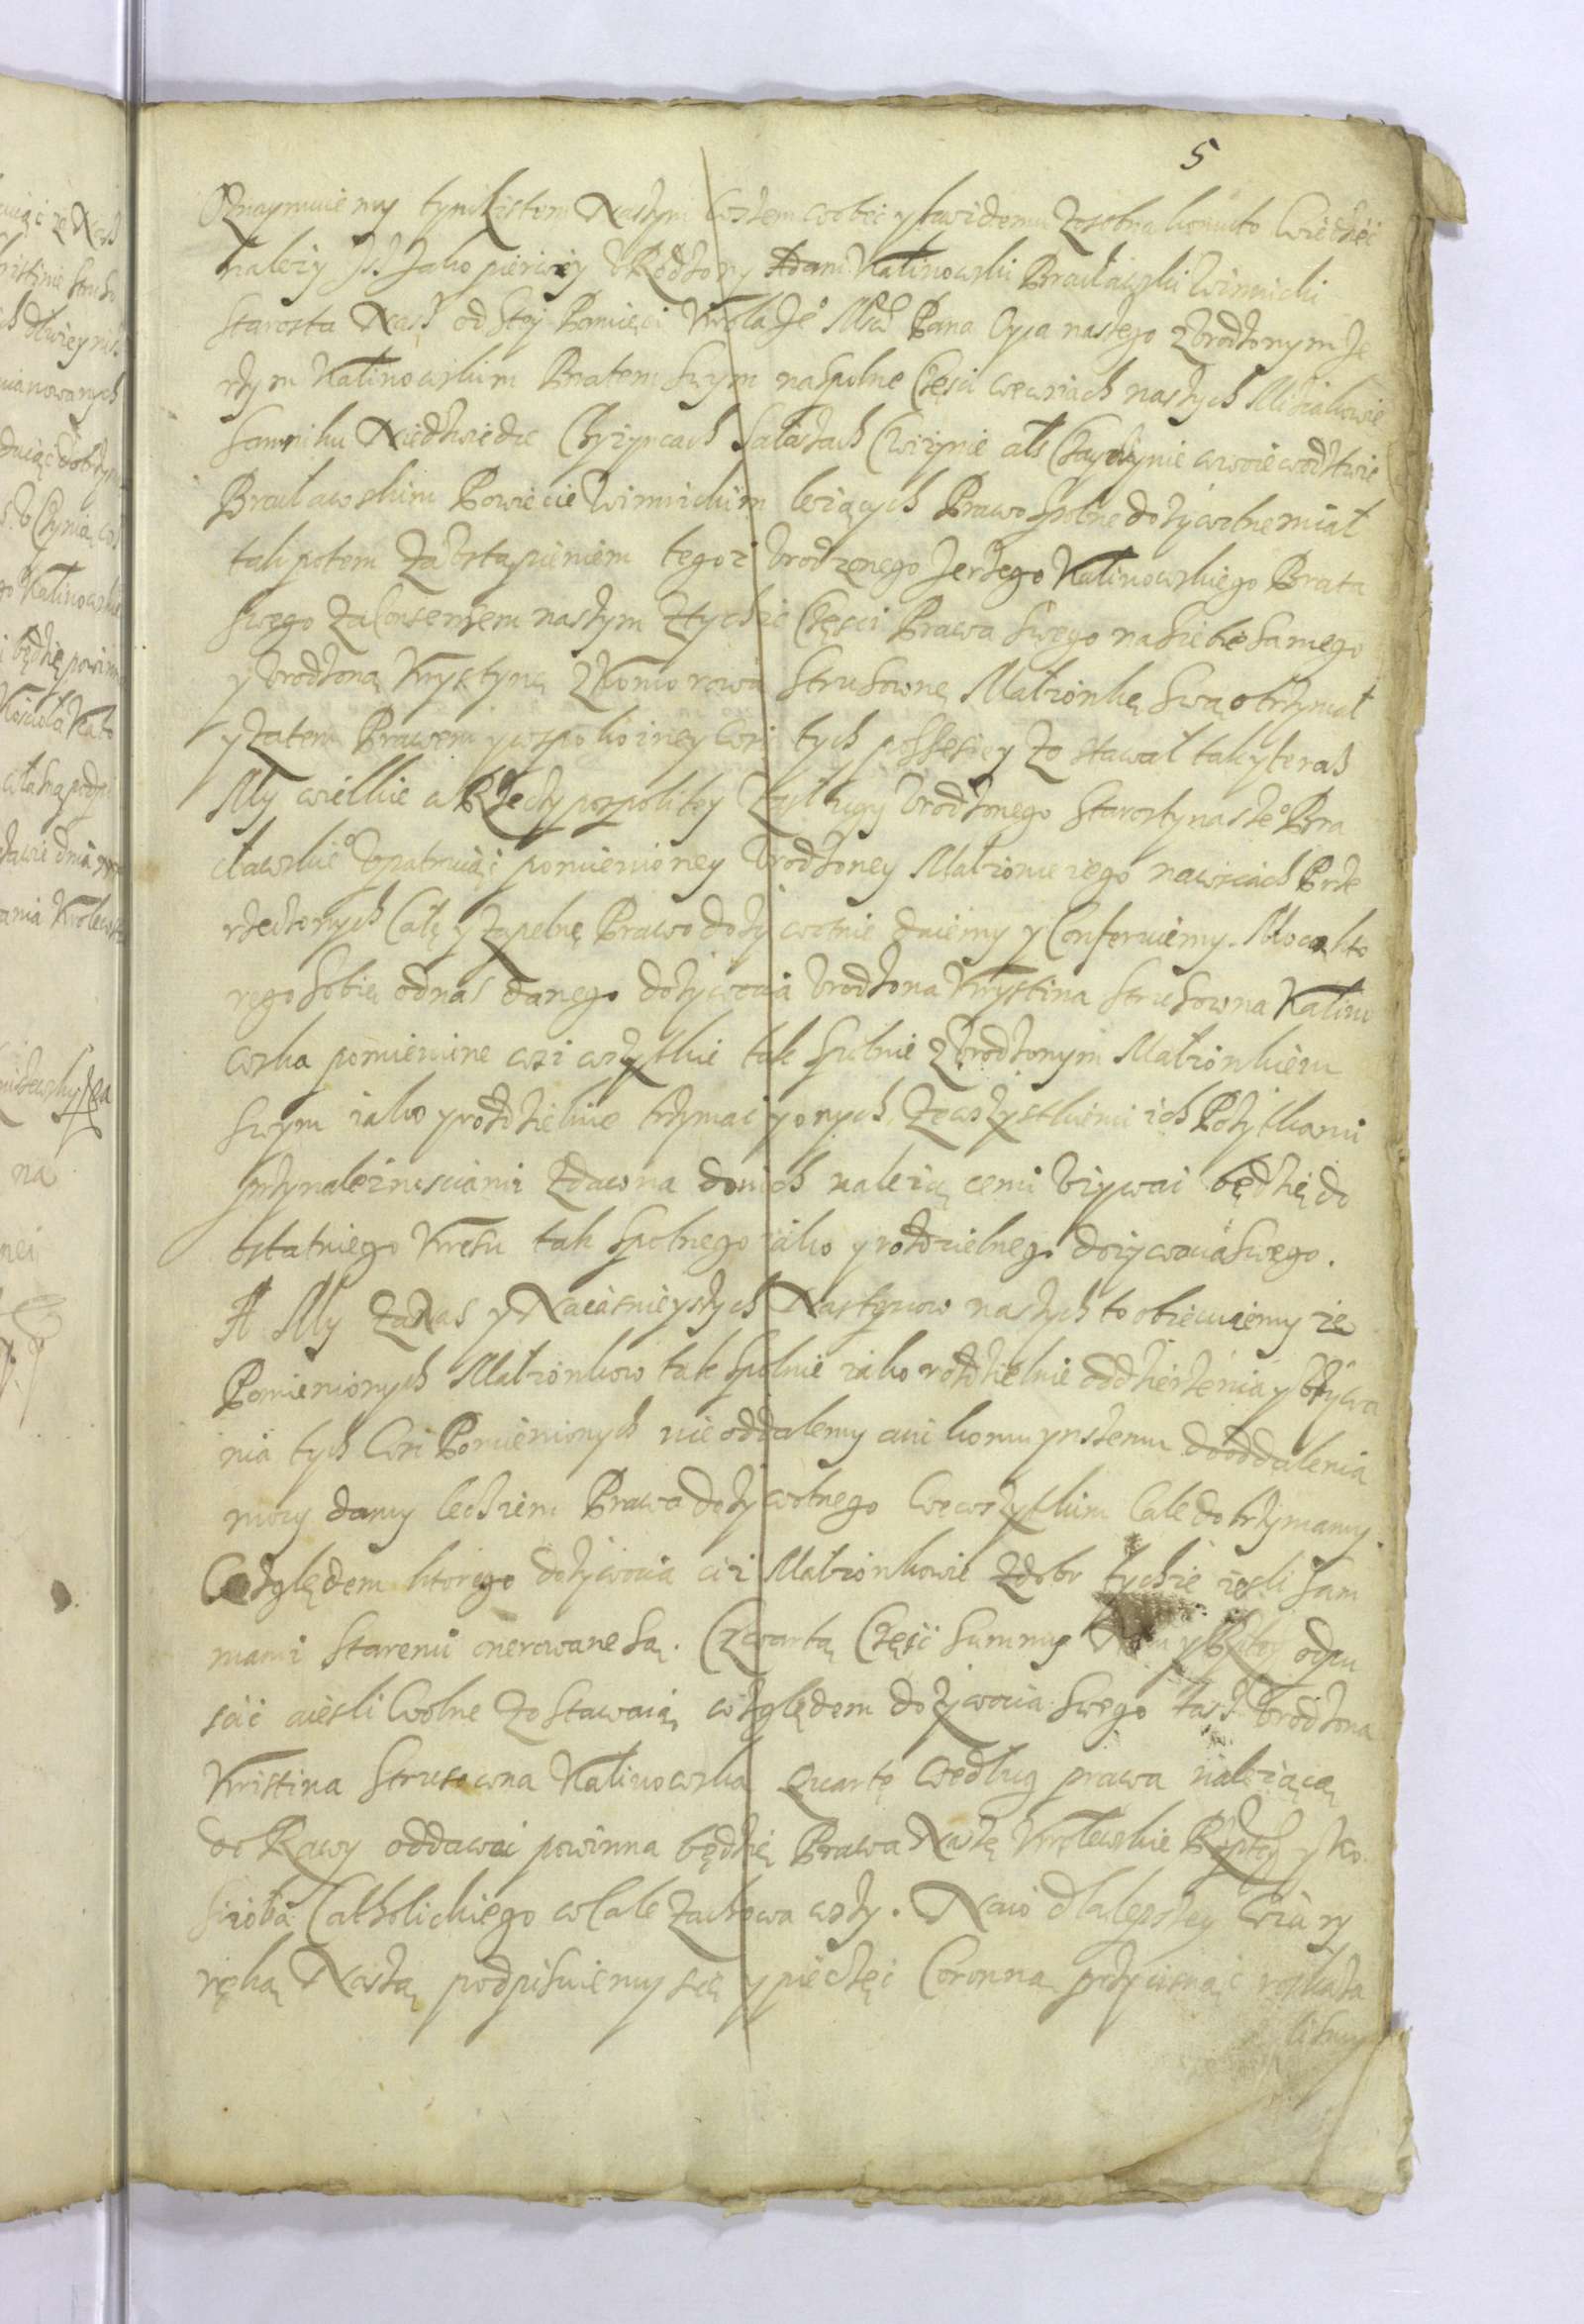 5
Oznaymuiemy tym Listem Naszym wszem wobec y kazdemu zosobna komu to wiedziec
nalezy Jsz Jako pierwey Urodzony Adam Kalinowski Bracławski Winnicki
Starosta Nasz od Stej Pamięci Krola Je° Mści Pana Oyca naszego z Urodzonym Je
rzym Kalinowskim Bratem Swym naspolne Części wewsiach naszych Miziakowie
Samniku Niedzwiedze Chyzyncach Sałaszach Cwizynie als w woiewodztwie
Bracławskim Powiecie Winnickim lezących Prawo spolne dozywotne miał
tak potem za Ustąpieniem tegoz Urodzonego Jerzego Kalinowskiego Brata
Swego za Consensem naszym z tychze Części Prawa Swego na Siebie Samego
y Urodzoną Krystynę z Komorowa Strusownę Małzonkę Swą otrzymał
y zatem Prawem y wspokoiney wsi tych possesiey zostawał tak y teraz
My wielkie w Rzeczypospolitey Zasługi Urodzonego Starosty nasze° Bra
cławskie° Upatruiąc pomienioney Urodzoney Małzonce iego nawsiach Prze
rzeczonych Całę y zupełnę Prawo dozywotnie daiemy y Conferuiemy. Mocą kto
rego Sobie odnas danego dozywocia Urodzona Krystina Strusowna Kalino
wska pomienine wsi wszystkie tak Spolnie z Urodzonym Małzonkiem
Swym iako y rozdzielnie trzymac y onych zewszystkiemi ich Pozytkami
przynaleznosciami zdawna donich nalezącemi Uzywac będzię do
ostatniego Kresu tak Spolnego iako y rozdzielnego dozywocia Swego.
A My za Nas y Naiasnieyszych Nastęmcow naszych to obiecuiemy ze
Pomienionych Małzonkow tak Spolnie iako rozdzielnie oddzierzenia y Uzywa
nia tych wsi Pomienionych nie oddalemy ani komu ynszemu do oddalenia
mocy damy lecz iem Prawa dozywotnego wewszytkim Cale dotrzymamy.
Względem ktorego dozywocia ciz Małzonkowie zdobr tychze iesli Sum
mami Staremi onerowane Są. Czwartą Część Summy Nam y Rptey odpu
scic aiesli wolne zostawaią względem dozywocia Swego tasz Urodzona
Kristina Strusowna Kalinowska Quartę według prawa nalezącą
do Rawy oddawac powinna będzię Prawa Naszę Krolewskie Rzptey y Ko
scioła Catholickiego wCale zachowawszy. Naco dlalepszey Wiary
ręką Naszą podpisuiemy się y pieczęc Coronną przycisnąc roskaza
lismy